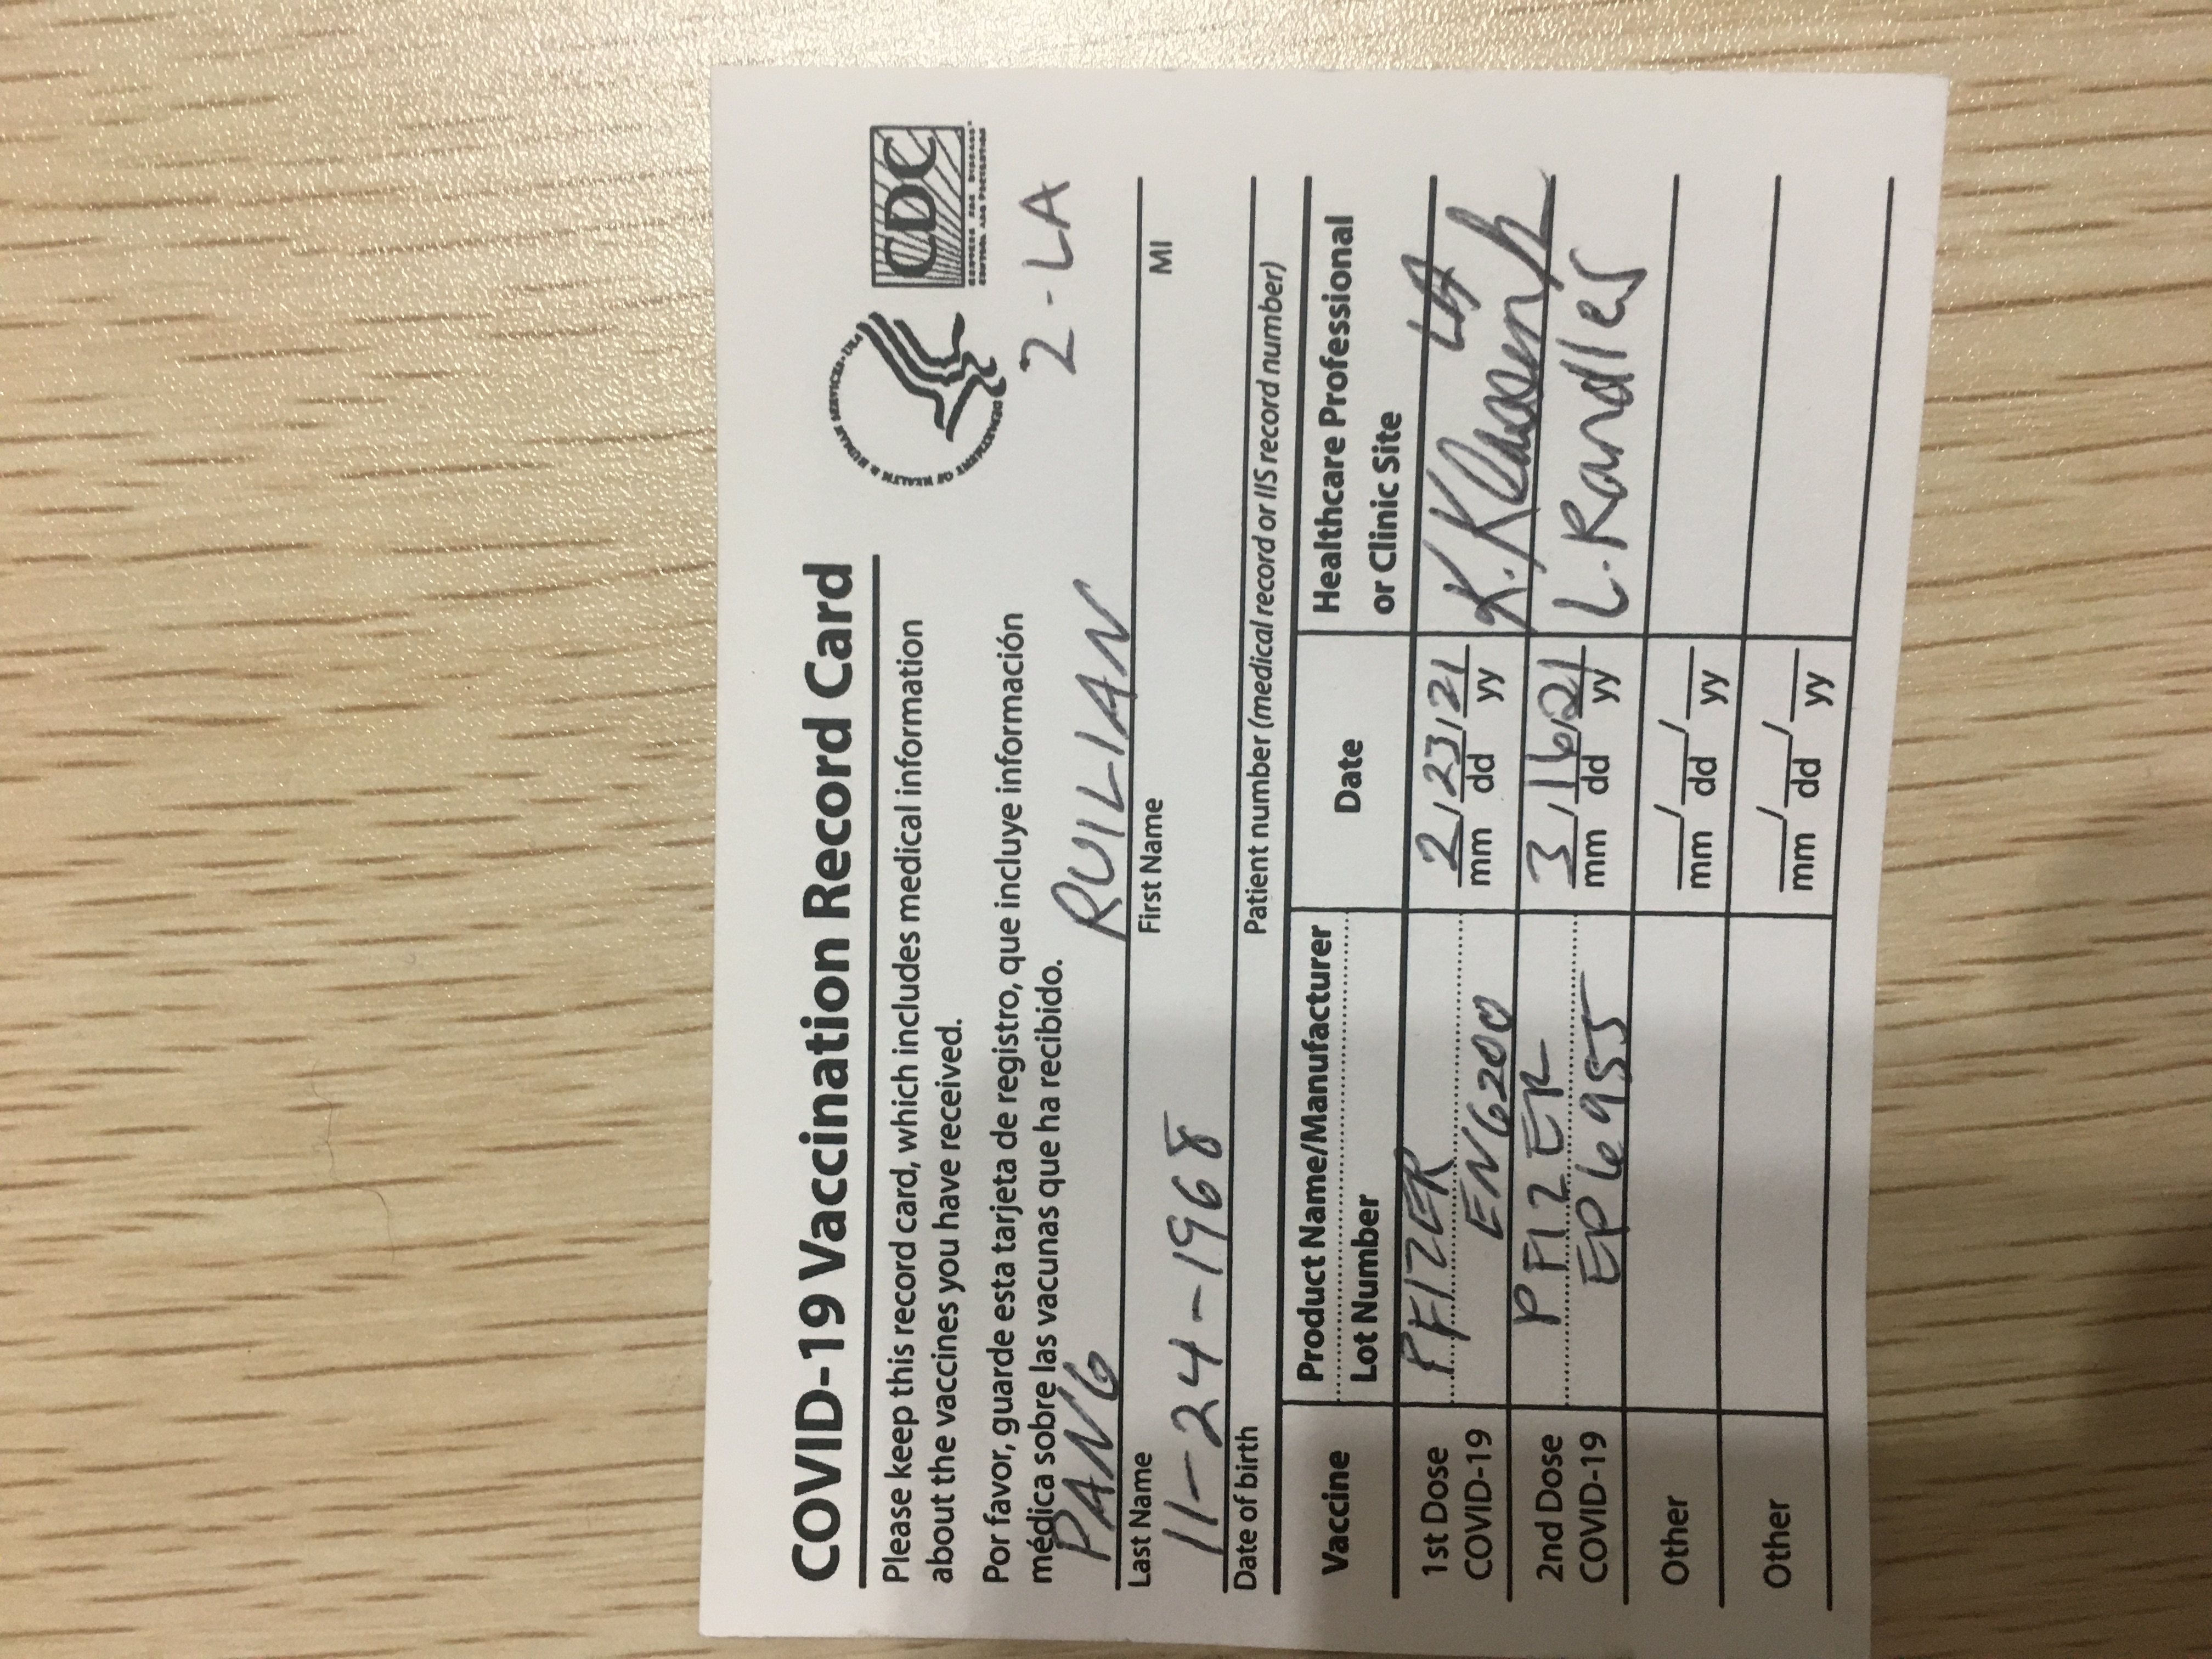 COVID-19 Vaccination Record Card
Please keep this record card, which includes medical information
about the vaccines you have received.
Por favor, guarde esta tarjeta de registro, que incluye información
médica sobre las vacunas que ha recibido.
DEPARTMENT OF HEALTH & HUMAN SERVICES • USA
CDC
CENTERS FOR DISEASE
CONTROL AND PREVENTION
2-LA
PANG RUILIAN
Last Name First Name MI
11-24-1968
Date of birth Patient number (medical record or IIS record number)
Vaccine Product Name/Manufacturer Date Healthcare Professional
Lot Number or Clinic Site
1st Dose PFIZER 2/23/21 LA
COVID-19 EN6200 mm dd yy K. Klassen
2nd Dose PFIZER 3/16/21 L. Randles
COVID-19 EP6955 mm dd yy
Other / /
mm dd yy
Other / /
mm dd yy